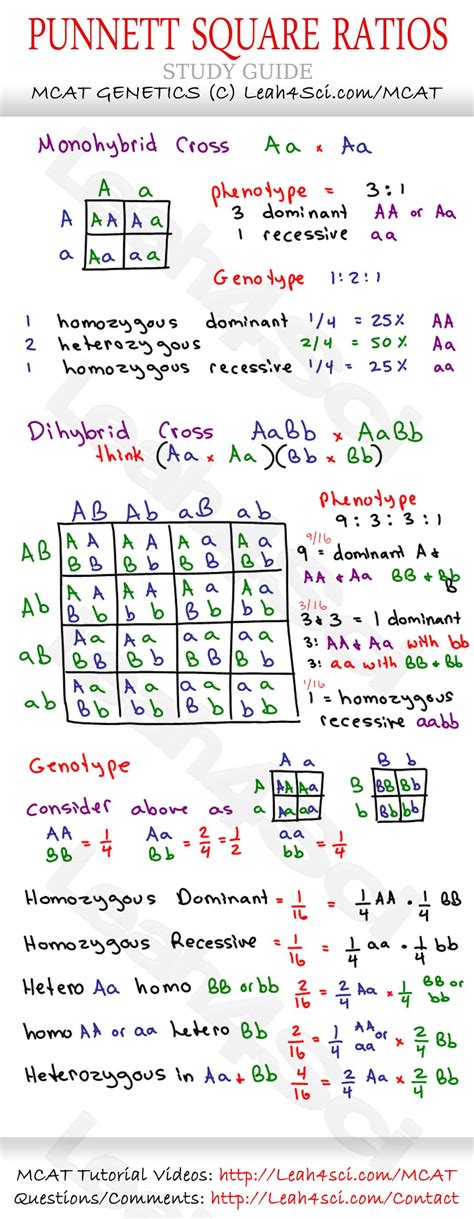 PUNNETT SQUARE RATIOS
STUDY GUIDE
MCAT GENETICS (C) Leah4Sci.com/MCAT
Monohybrid Cross Aa x Aa
A a
A AA Aa
a Aa aa
phenotype = 3:1
3 dominant AA or Aa
1 recessive aa
Genotype 1:2:1
1 homozygous dominant 1/4 = 25% AA
2 heterozygous 2/4 = 50% Aa
1 homozygous recessive 1/4 = 25% aa
Dihybrid Cross AaBb x AaBb
think (Aa x Aa)(Bb x Bb)
AB Ab aB ab
AB A A A A A a A a
B B B b B B B b
Ab A A A A A a A a
B b b b B b b b
aB A a A a a a a a
B B B b B B B b
ab A a A a a a a a
B b b b B b b b
Phenotype
9:3:3:1
9/16
9 = dominant A &
AA & Aa BB & Bb
B
3/16
3 & 3 = 1 dominant
3: AA & Aa with bb
3: aa with BB & Bb
1/16
1 = homozygous
recessive aabb
Genotype
consider above as
A a
A AA Aa
a Aa aa
B b
B BB Bb
b Bb bb
AA BB = 1/4 Aa Bb = 2/4 = 1/2 aa bb = 1/4
Homozygous Dominant = 1/16 = 1/4 AA · 1/4 BB
Homozygous Recessive = 1/16 = 1/4 aa · 1/4 bb
Hetero Aa homo BB or bb 2/16 = 2/4 Aa x 1/4 BB or bb
homo AA or aa hetero Bb 2/16 = 1/4 AA or aa x 2/4 Bb
Heterozygous in Aa + Bb 4/16 = 2/4 Aa x 2/4 Bb
Leah4Sci
MCAT Tutorial Videos: http://Leah4sci.com/MCAT
Questions/Comments: http://Leah4sci.com/Contact